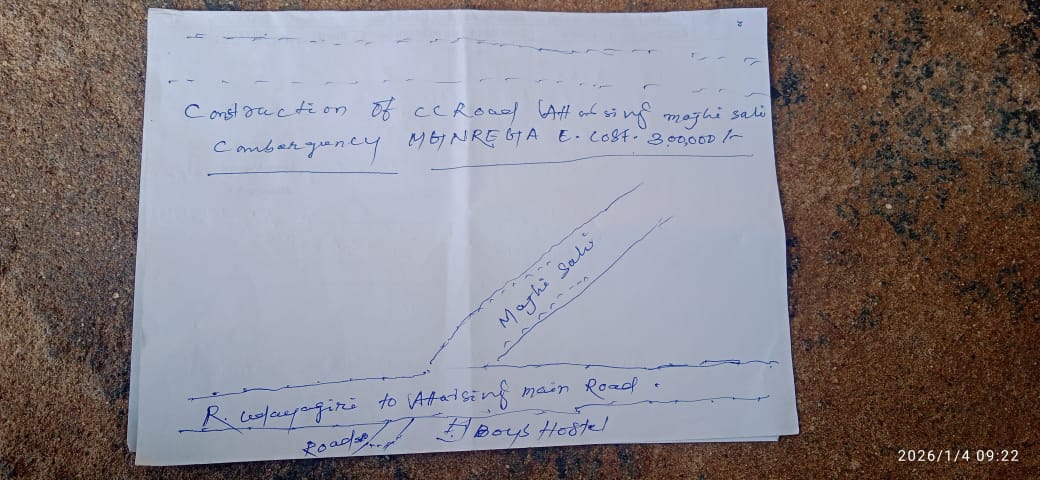 Construction of CC Road Attarsing maghi sahi
Combargency MGNREGA E. Cost. 3,00,000/-
Maghi Sahi
R. Udayagiri to Attarsing main Road.
Road
Boys Hostel
2026/1/4 09:22